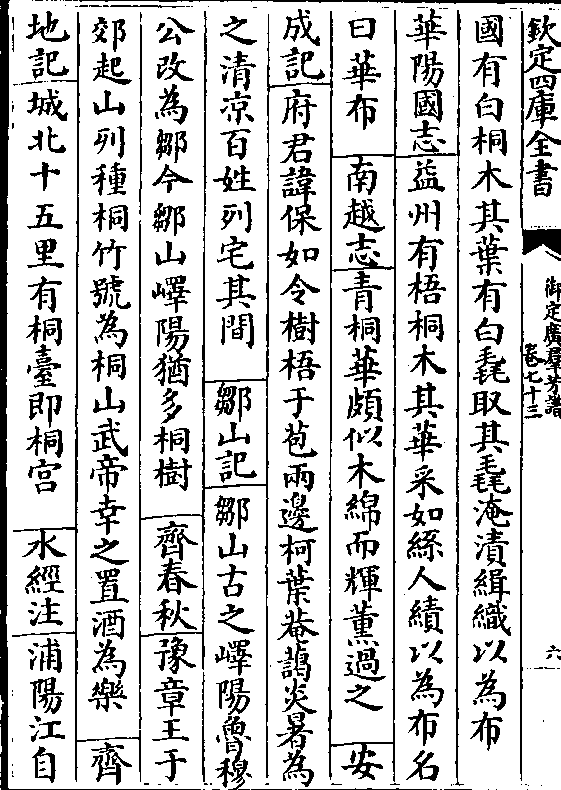 欽定四庫全書
御定廣羣芳譜
卷七十三
六
國有白桐木其葉有白毳取其毳淹漬緝織以為布
華陽國志益州有梧桐木其華采如絲人績以為布名
曰華布南越志青桐華頗似木綿而輝薰過之安
成記府君諱保如令樹梧于苞兩邊柯葉菴藹炎暑為
之清凉百姓列宅其間鄒山記鄒山古之嶧陽魯穆
公改為鄒今鄒山嶧陽猶多桐樹齊春秋豫章王于
郊起山列種桐竹號為桐山武帝幸之置酒為樂齊
地記城北十五里有桐臺即桐宫水經注浦陽江自